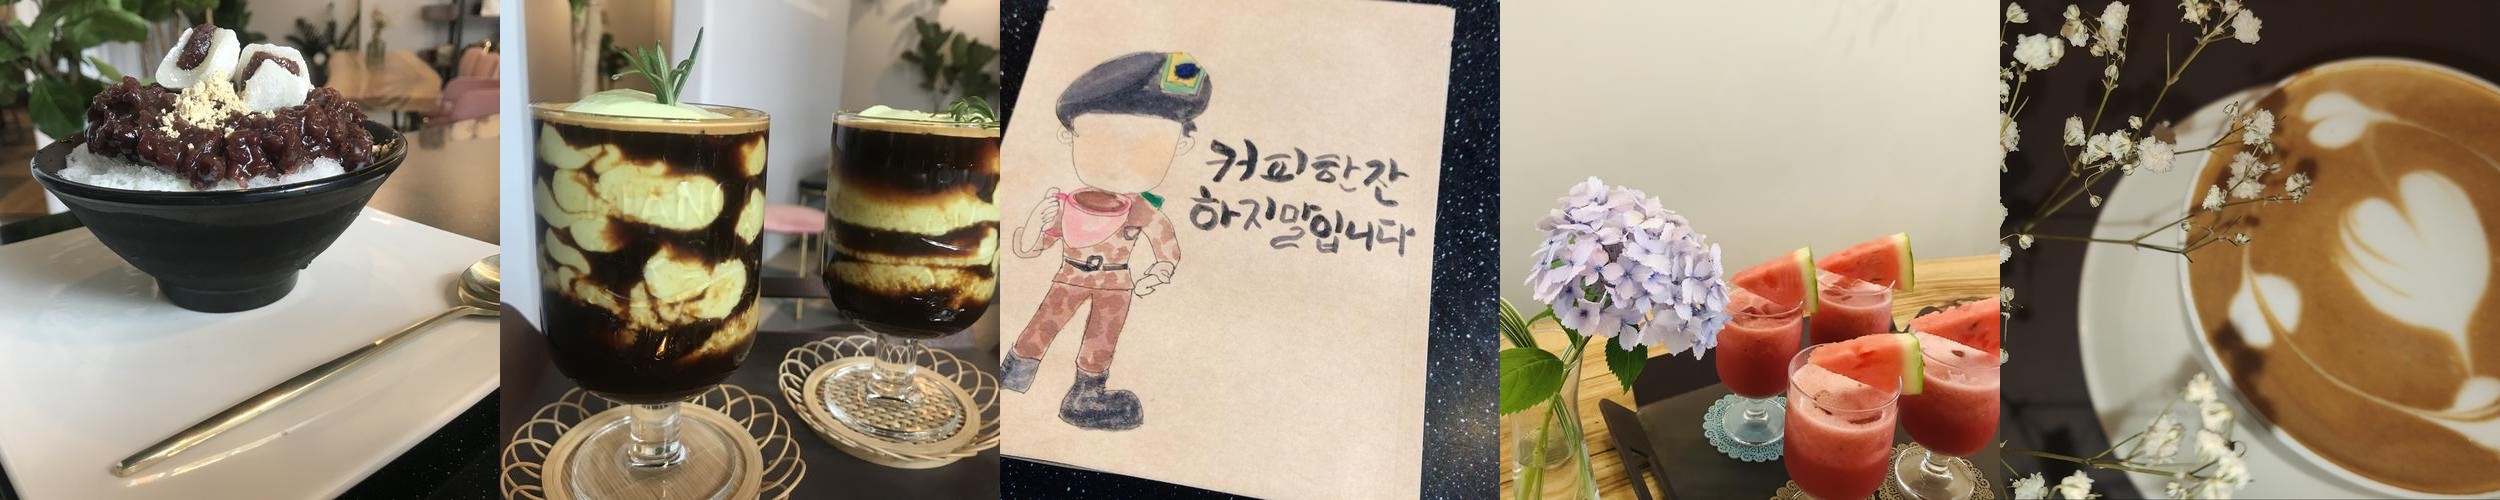 커피한잔
하지말입니다